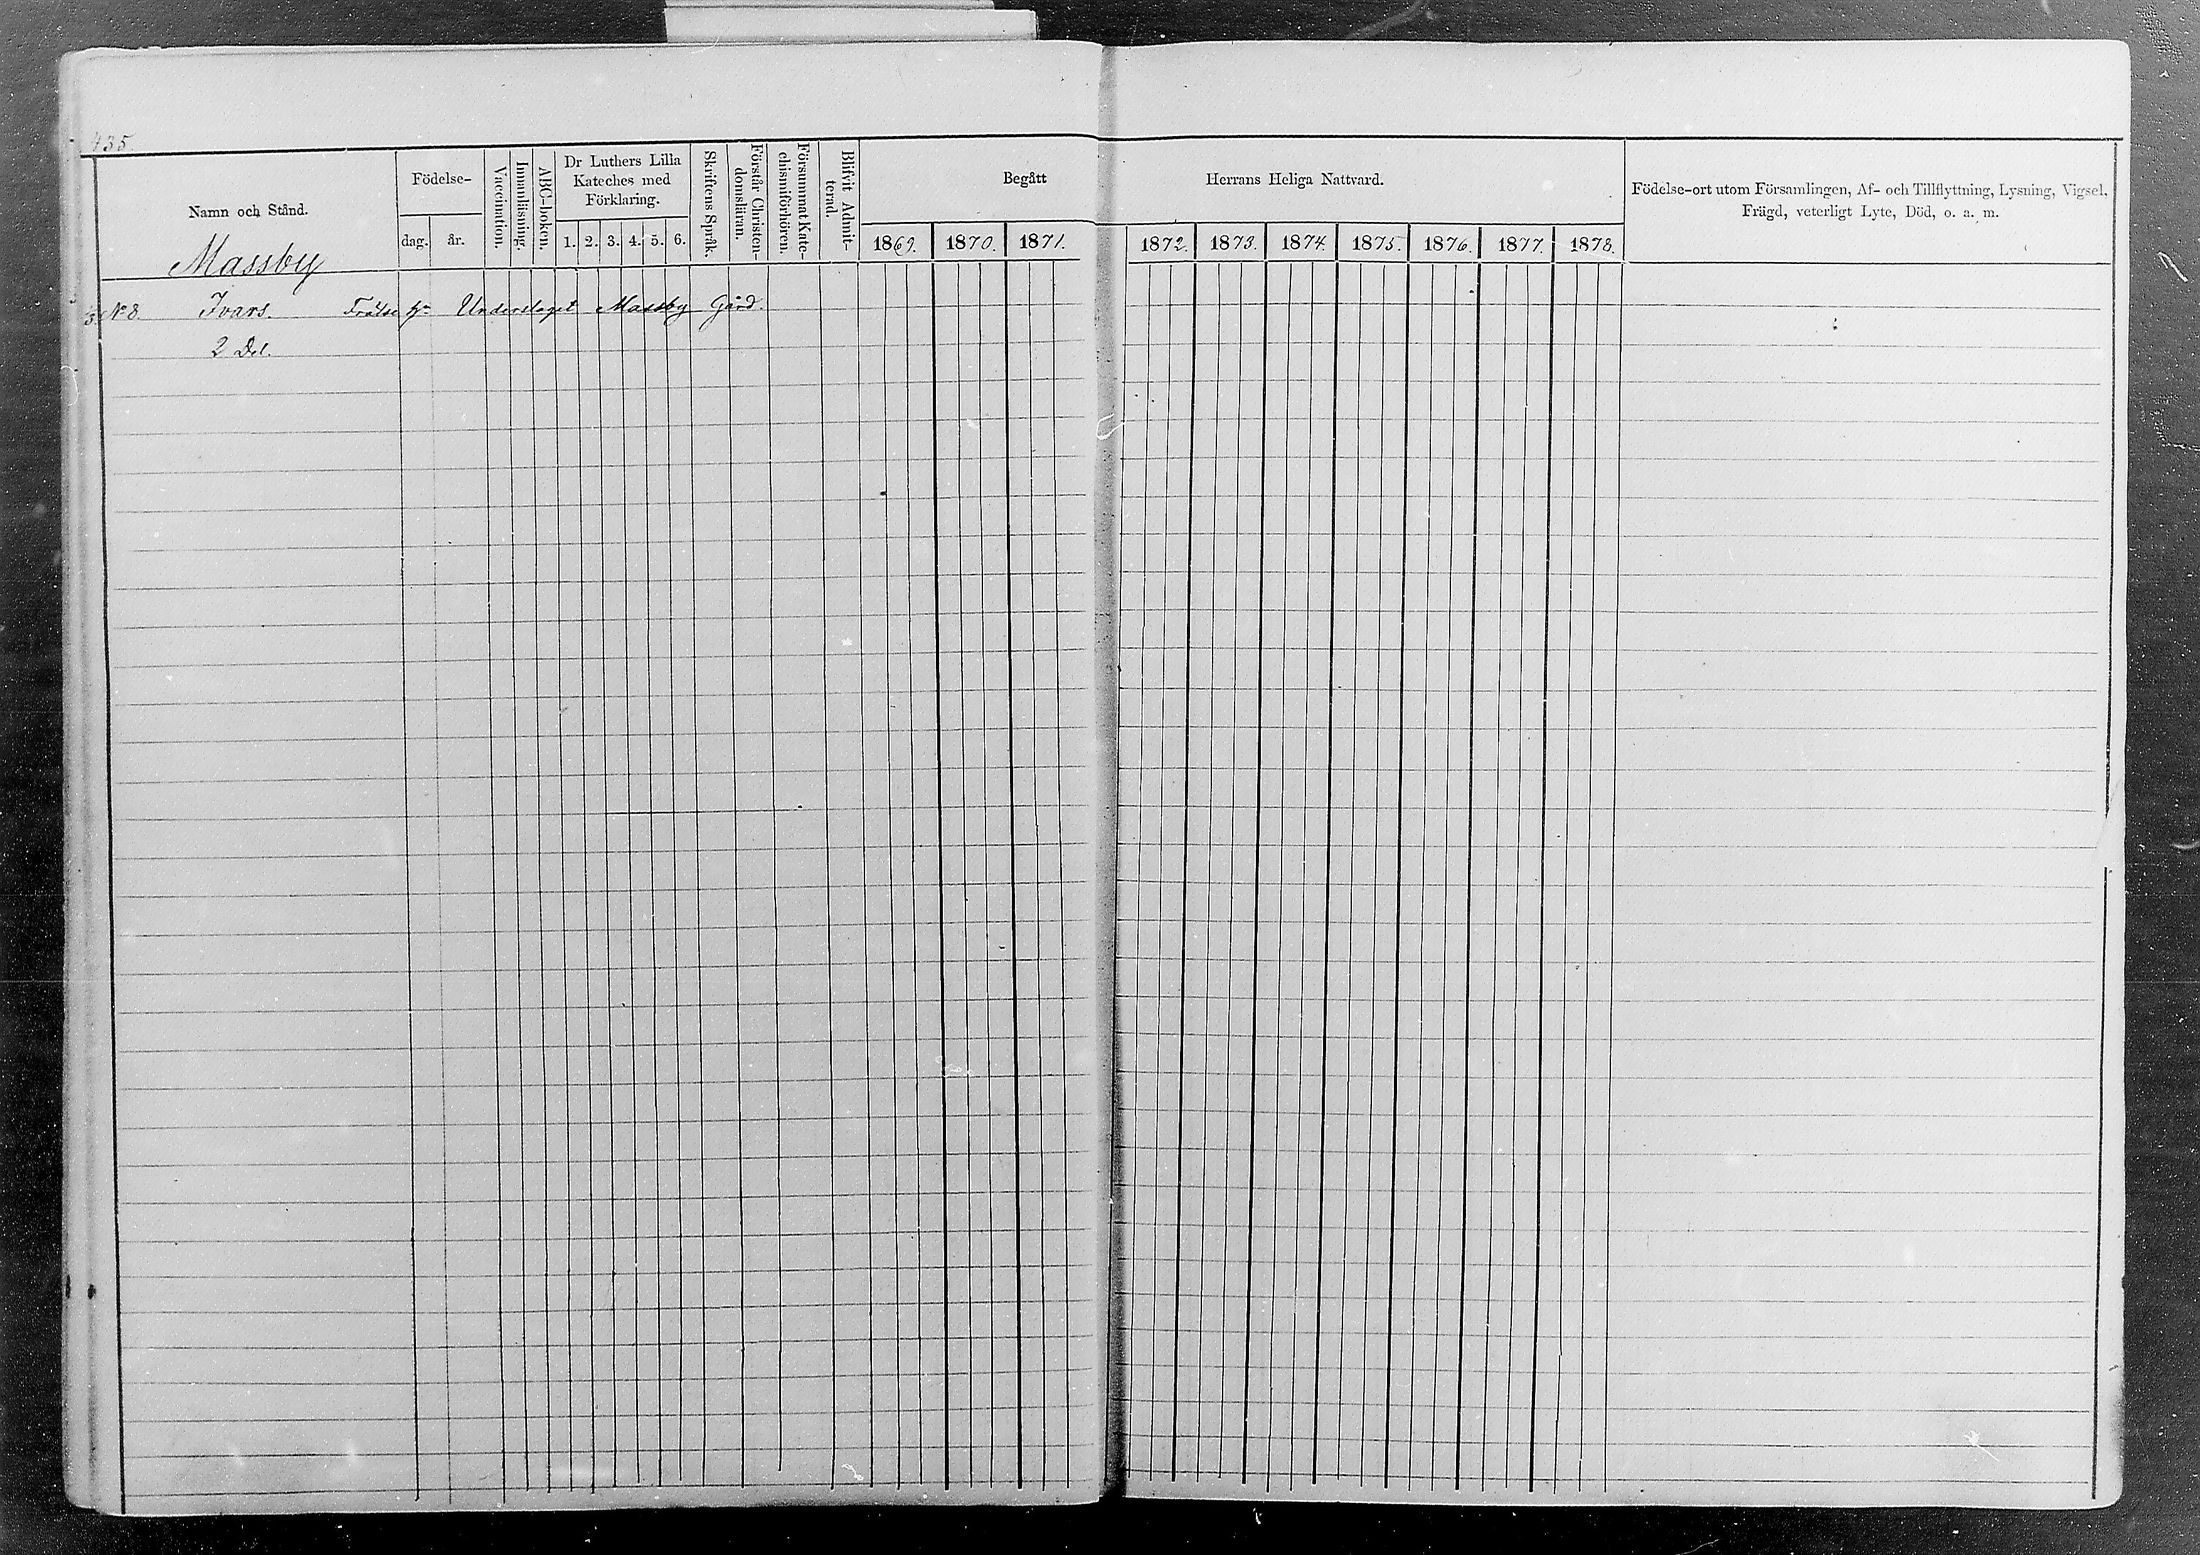 435
Namn och Stånd.
Massby
Födelse-
dag. år.
Vaccination.
Innanläsning.
ABC-boken.
Dr Luthers Lilla
Kateches med
Förklaring.
1. 2. 3. 4. 5. 6.
Skriftens Språk.
Förstår Christen-
domsläran.
Försummat Kate-
chismiförhören.
Blifvit Admit-
terad.
Begått Herrans Heliga Nattvard.
1869. 1870. 1871. 1872. 1873. 1874. 1875. 1876. 1877. 1878.
Födelse-ort utom Församlingen, Af- och Tillflyttning, Lysning, Vigsel,
Frägd, veterligt Lyte, Död, o. a. m.
No 8. Ivars. Frälse Underslaget Massby Gård.
2 Del.